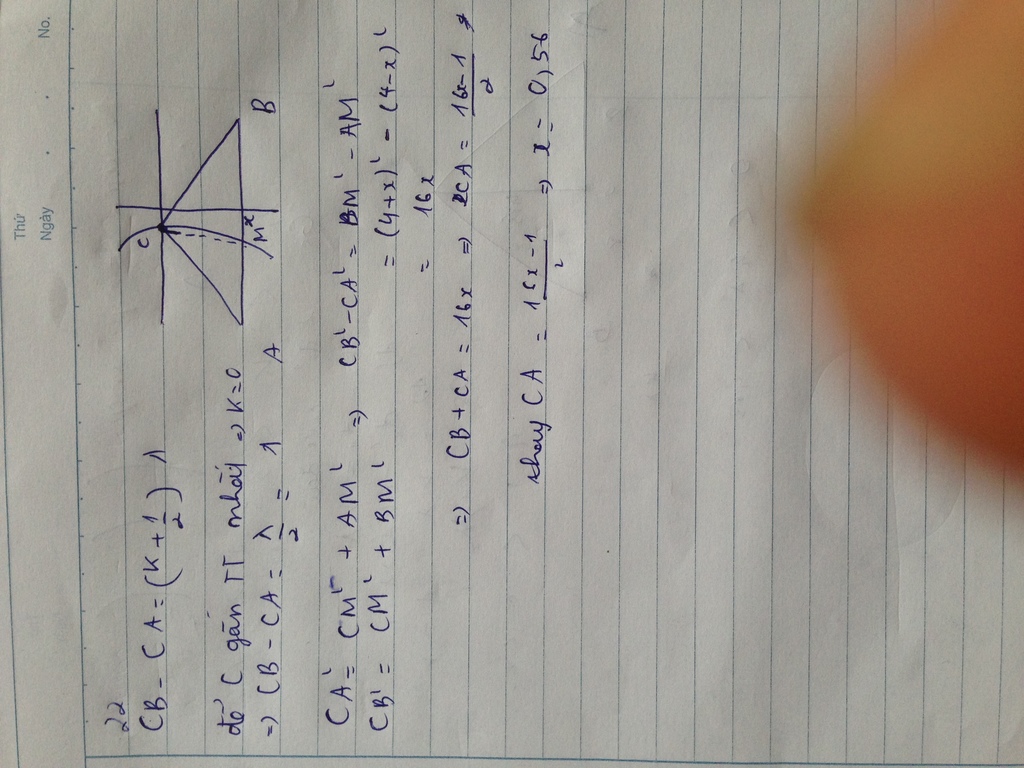 Thứ
Ngày . . No.
22
CB - CA = (K + 1/2) λ
để C gần TT nhất => K = 0
=> CB - CA = λ/2 = 1
C
A M x B
CA² = CM² + AM² => CB² - CA² = BM² - AM²
CB² = CM² + BM² = (4+x)² - (4-x)²
= 16x
=> CB + CA = 16x => CA = (16x - 1)/2
thay CA = (16x - 1)/2 => x = 0,56